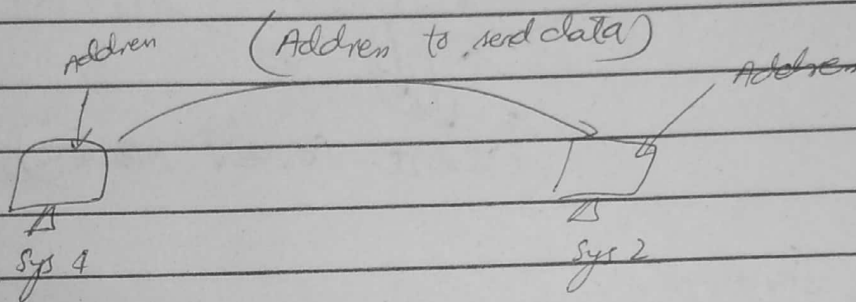 Address (Address to send data)
Address
Sys 1
Sys 2